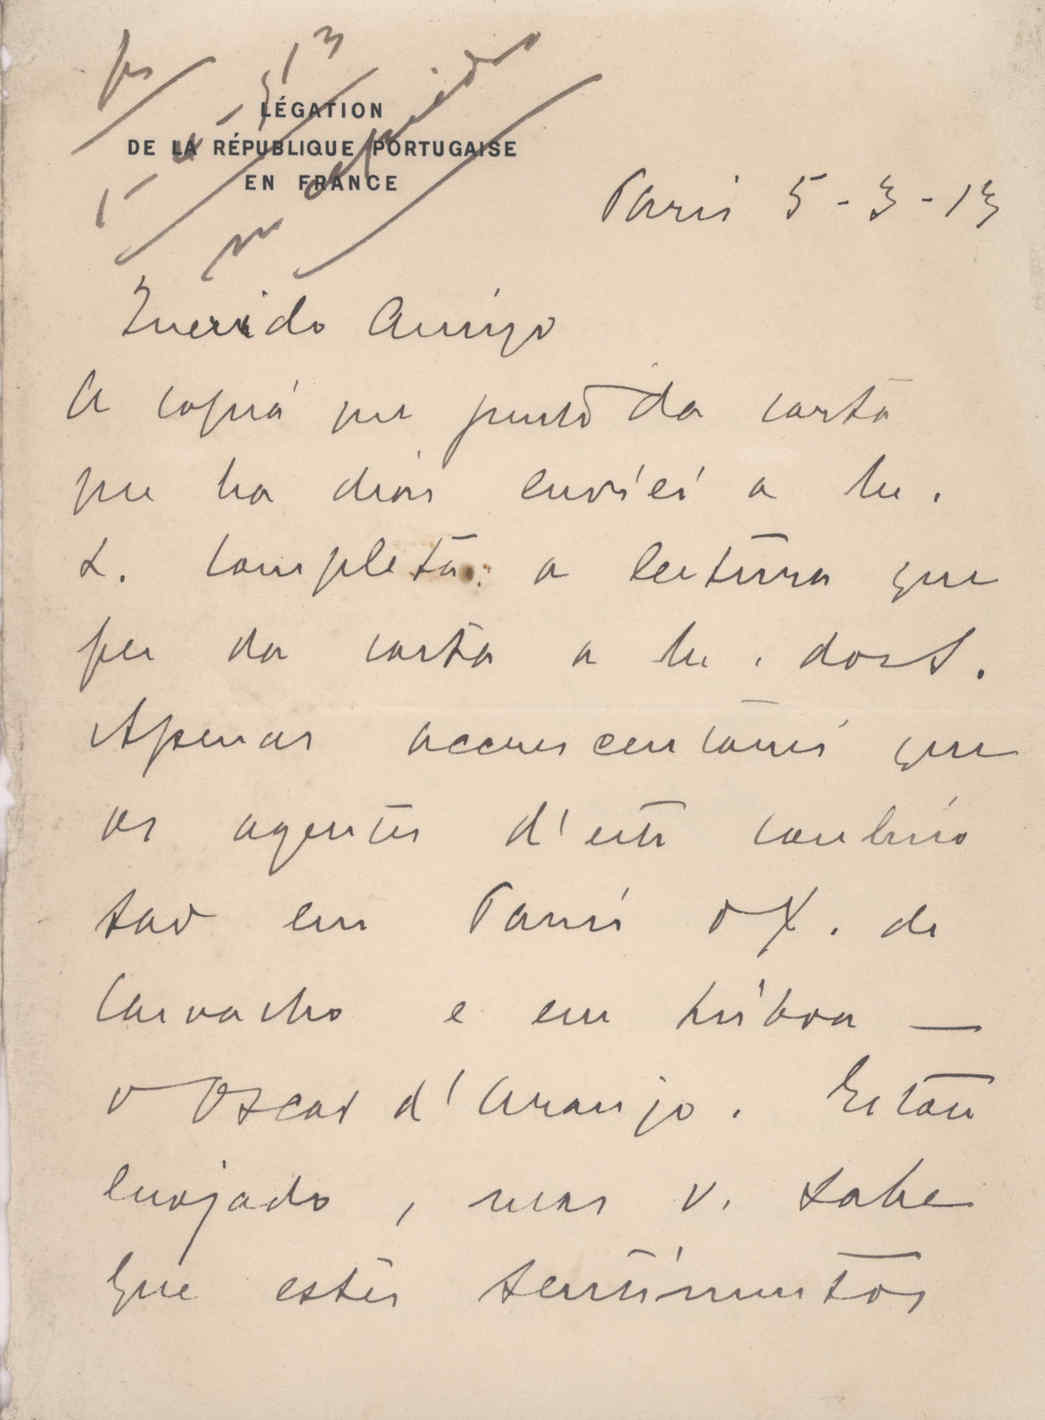 LÉGATION
DE LA RÉPUBLIQUE PORTUGAISE
EN FRANCE
Paris 5-3-13
Querido Amigo
A copia que junto da carta
que ha dias enviei a M.
L. completa a leitura que
fez da carta a M. dos S.
Apenas accrescentarei que
os agentes d'esta combina
são em Paris o X. de
Carvalho e em Lisboa —
o Oscar d'Araujo. Estou
enojado, mas v. sabe
que estes sentimentos